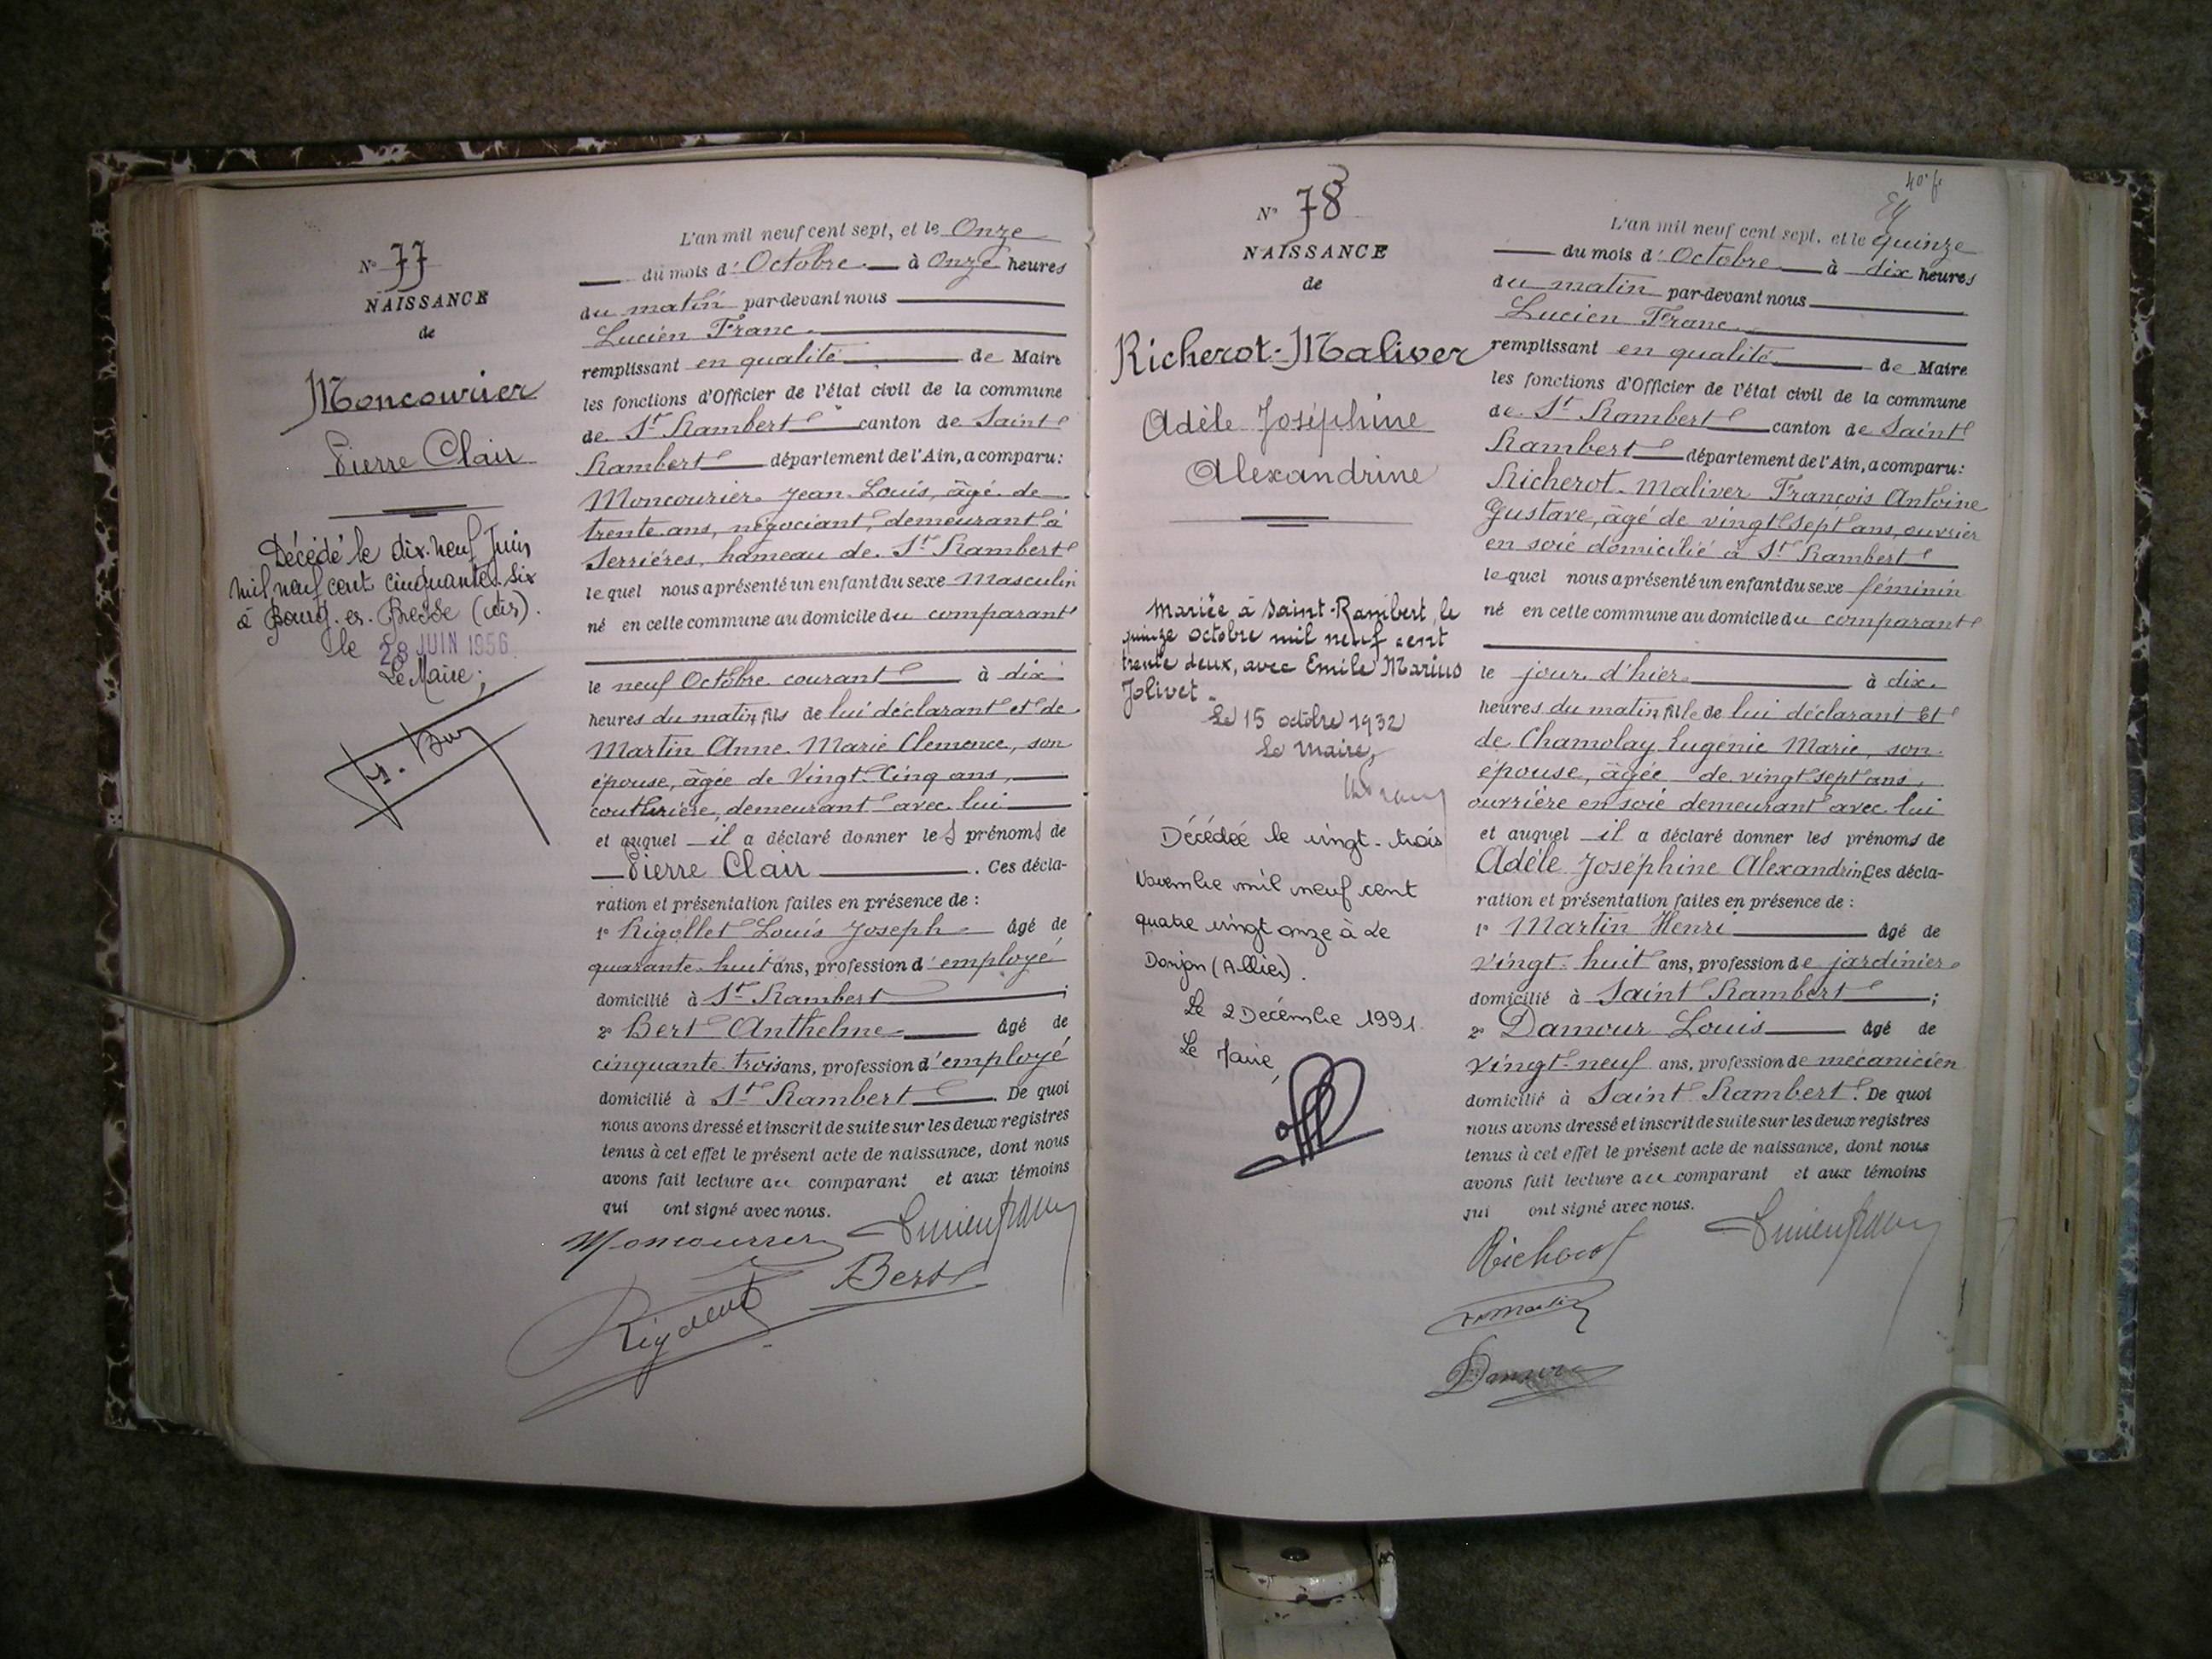 N° 77
NAISSANCE
de
Moncourier
Pierre Clair
Décédé le dix-neuf Juin
mil neuf cent cinquante six
à Bourg-en-Bresse (Ain).
le 28 JUIN 1956
Le Maire;
L'an mil neuf cent sept, et le Onze
du mois d'Octobre à Onze heures
du matin par-devant nous
Lucien Franc
remplissant en qualité de Maire
les fonctions d'Officier de l'état civil de la commune
de St Rambert canton de Saint
Rambert département de l'Ain, a comparu:
Moncourier Jean Louis, âgé de
trente ans, négociant, demeurant à
Serrières, hameau de St Rambert
lequel nous a présenté un enfant du sexe Masculin
né en cette commune au domicile du comparant
le neuf Octobre courant à dix
heures du matin fils de lui déclarant et de
Martin Anne Marie Clemence, son
épouse, âgée de Vingt-Cinq ans,
couturière, demeurant avec lui
et auquel il a déclaré donner les prénoms de
Pierre Clair. Ces décla-
ration et présentation faites en présence de :
1° Rigollet Louis Joseph âgé de
quarante-huit ans, profession d'employé
domicilié à St Rambert ;
2° Bert Anthelme âgé de
cinquante trois ans, profession d'employé
domicilié à St Rambert. De quoi
nous avons dressé et inscrit de suite sur les deux registres
tenus à cet effet le présent acte de naissance, dont nous
avons fait lecture au comparant et aux témoins
qui ont signé avec nous.
Moncourier Lucien Franc
Bert
N° 78
NAISSANCE
de
Richerot-Maliver
Adèle Joséphine
Alexandrine
Mariée à Saint-Rambert, le
quinze octobre mil neuf cent
trente deux, avec Emile Marius
Jolivet.
Le 15 octobre 1932
Le Maire,
Décédée le vingt-trois
Novembre mil neuf cent
quatre vingt onze à Le
Donjon (Allier).
Le 2 Décembre 1991.
Le Maire,
L'an mil neuf cent sept, et le quinze
du mois d'Octobre à dix heures
du matin par-devant nous
Lucien Franc
remplissant en qualité de Maire
les fonctions d'Officier de l'état civil de la commune
de St Rambert canton de Saint
Rambert département de l'Ain, a comparu:
Richerot-Maliver François Antoine
Gustave, âgé de vingt sept ans, ouvrier
en soie domicilié à St Rambert
lequel nous a présenté un enfant du sexe féminin
né en cette commune au domicile du comparant
le jour d'hier à dix
heures du matin fille de lui déclarant et
de Chamolay Eugénie Marie, son
épouse, âgée de vingt sept ans,
ouvrière en soie demeurant avec lui
et auquel il a déclaré donner les prénoms de
Adèle Joséphine Alexandrine Ces décla-
ration et présentation faites en présence de :
1° Martin Henri âgé de
vingt-huit ans, profession de jardinier
domicilié à Saint Rambert ;
2° Damour Louis âgé de
vingt-neuf ans, profession de mécanicien
domicilié à Saint Rambert. De quoi
nous avons dressé et inscrit de suite sur les deux registres
tenus à cet effet le présent acte de naissance, dont nous
avons fait lecture au comparant et aux témoins
qui ont signé avec nous.
Richerot Lucien Franc
Martin
Damour